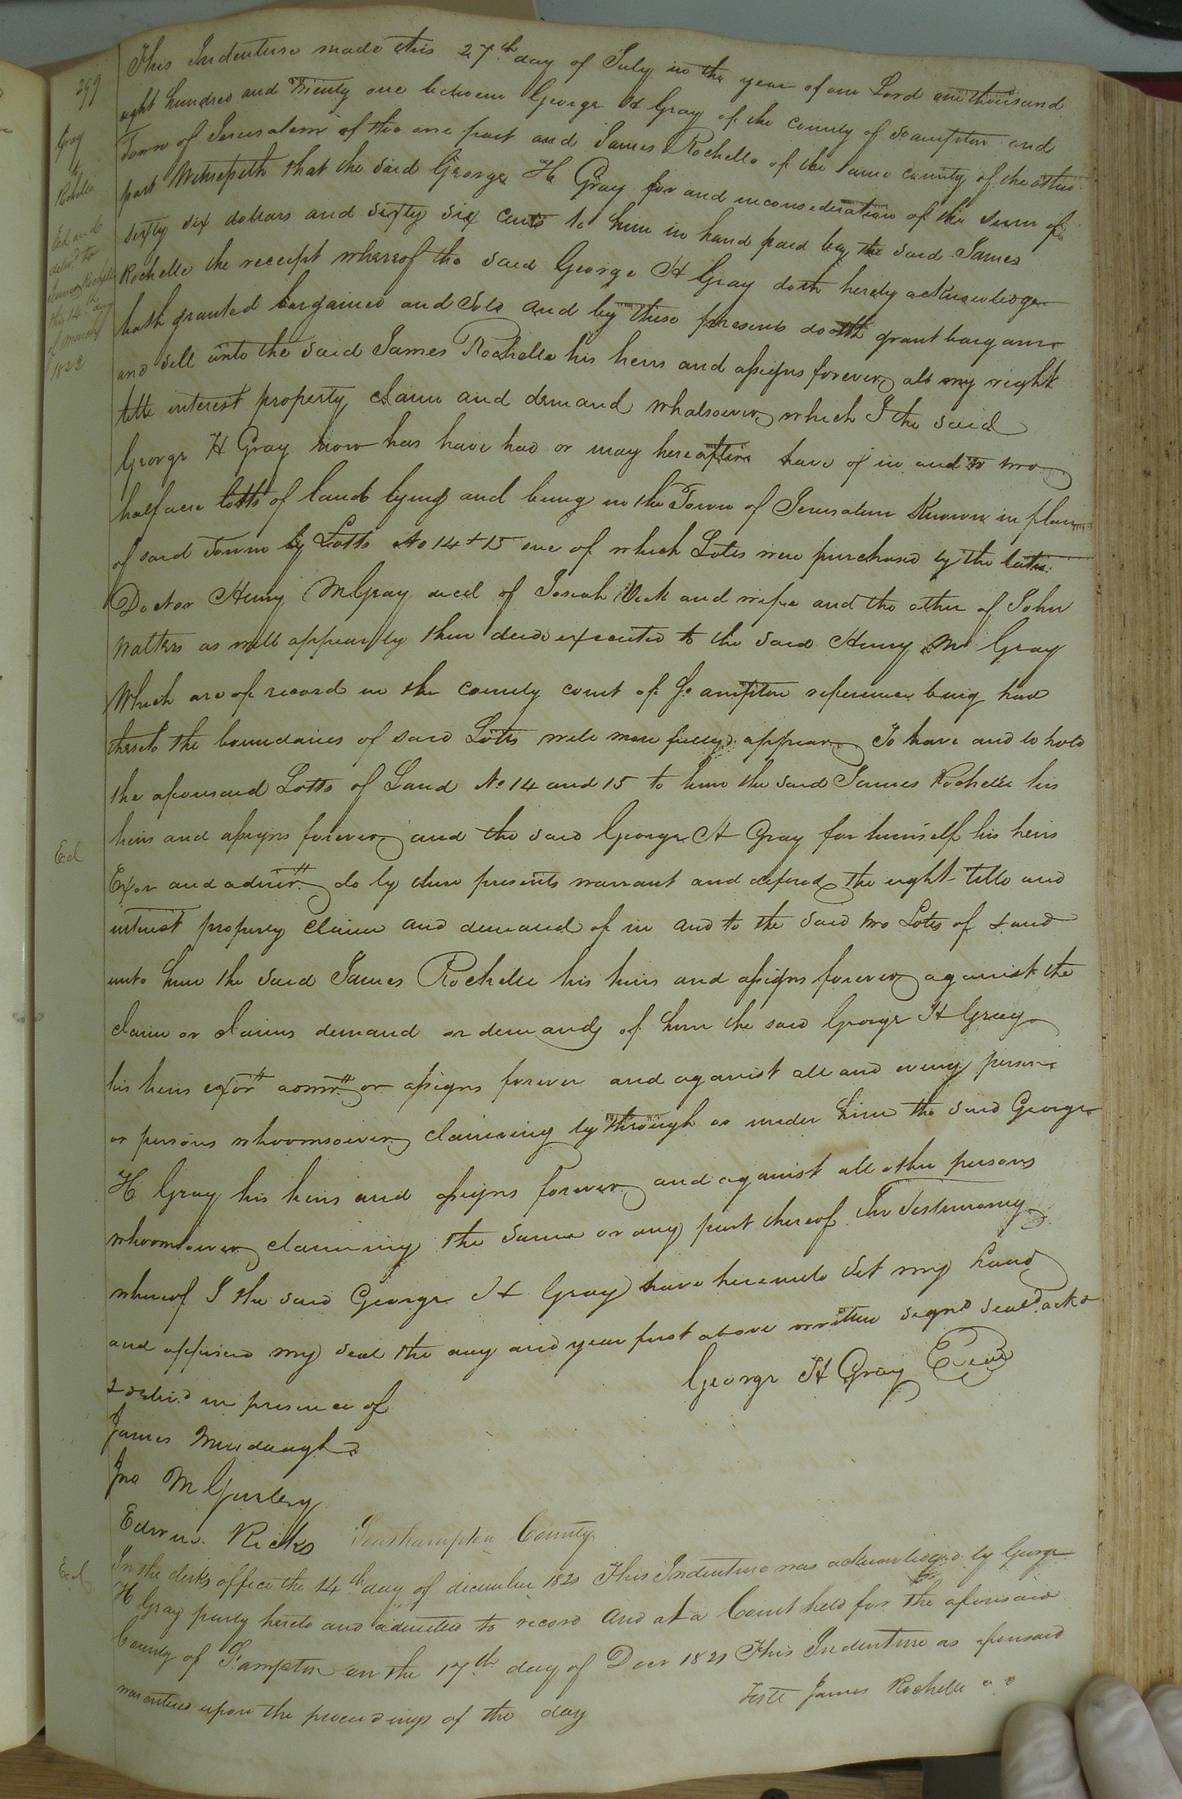 299
Gray
to
Rochelle
Exd and
deliv'd to
James Rochelle
this 14th day
of March
1822
This Indenture made this 27th day of July in the year of our Lord one thousand
eight hundred and Twenty one between George H Gray of the county of So ampton and
Town of Jerusalem of the one part and James Rochelle of the same county of the other
part Witnesseth that the said George H Gray for and in consideration of the sum of
sixty six dollars and sixty six cents to him in hand paid by the said James
Rochelle the receipt whereof the said George H Gray doth hereby acknowledge
hath granted bargained and Sold and by these presents doth grant bargain
and sell unto the said James Rochelle his heirs and assigns forever all my right
title interest property claim and demand whatsoever which I the said
George H Gray now has have had or may hereafter have of in and to two
half acre lotts of land lying and being in the Town of Jerusalem Known in plan
of said Town by Lotts No 14 + 15 one of which Lotts were purchased by the late
Doctor Henry M Gray decd of Josiah Vick and wife and the other of John
Walters as will appear by their deeds executed to the said Henry M Gray
Which are of record in the county court of So ampton reference being had
thereto the boundaries of said Lotts will more fully appear To have and to hold
the aforesaid Lotts of Land No 14 and 15 to him the said James Rochelle his
heirs and assigns forever and the said George H Gray for himself his heirs
Exd
Exor and admrs do by these presents warrant and defend the right title and
interest property claim and demand of in and to the said two Lotts of Land
unto him the said James Rochelle his heirs and assigns forever against the
claim or claims demand or demands of him the said George H Gray
his heirs exors admrs or assigns forever and against all and every person
or persons whoomsoever claiming by through or under him the said George
H Gray his heirs and assigns forever and against all other persons
whoomsoever claiming the same or any part thereof In Testimony
whereof I the said George H Gray have hereunto Set my hand
and affixed my seal the day and year first above written Signd Seald ackd
& deliv'd in presence of
George H Gray Seal
James Murdaugh
Jno M Gurley
Edwin Ricks
Southampton County
Exd
In the clerks office the 14th day of december 1821 This Indenture was acknowledged by George
H Gray party hereto and admitted to record And at a Court held for the aforesaid
County of S.ampton on the 17th day of Decr 1821 This Indenture as aforesaid
was entered upon the proceedings of the day
Teste James Rochelle